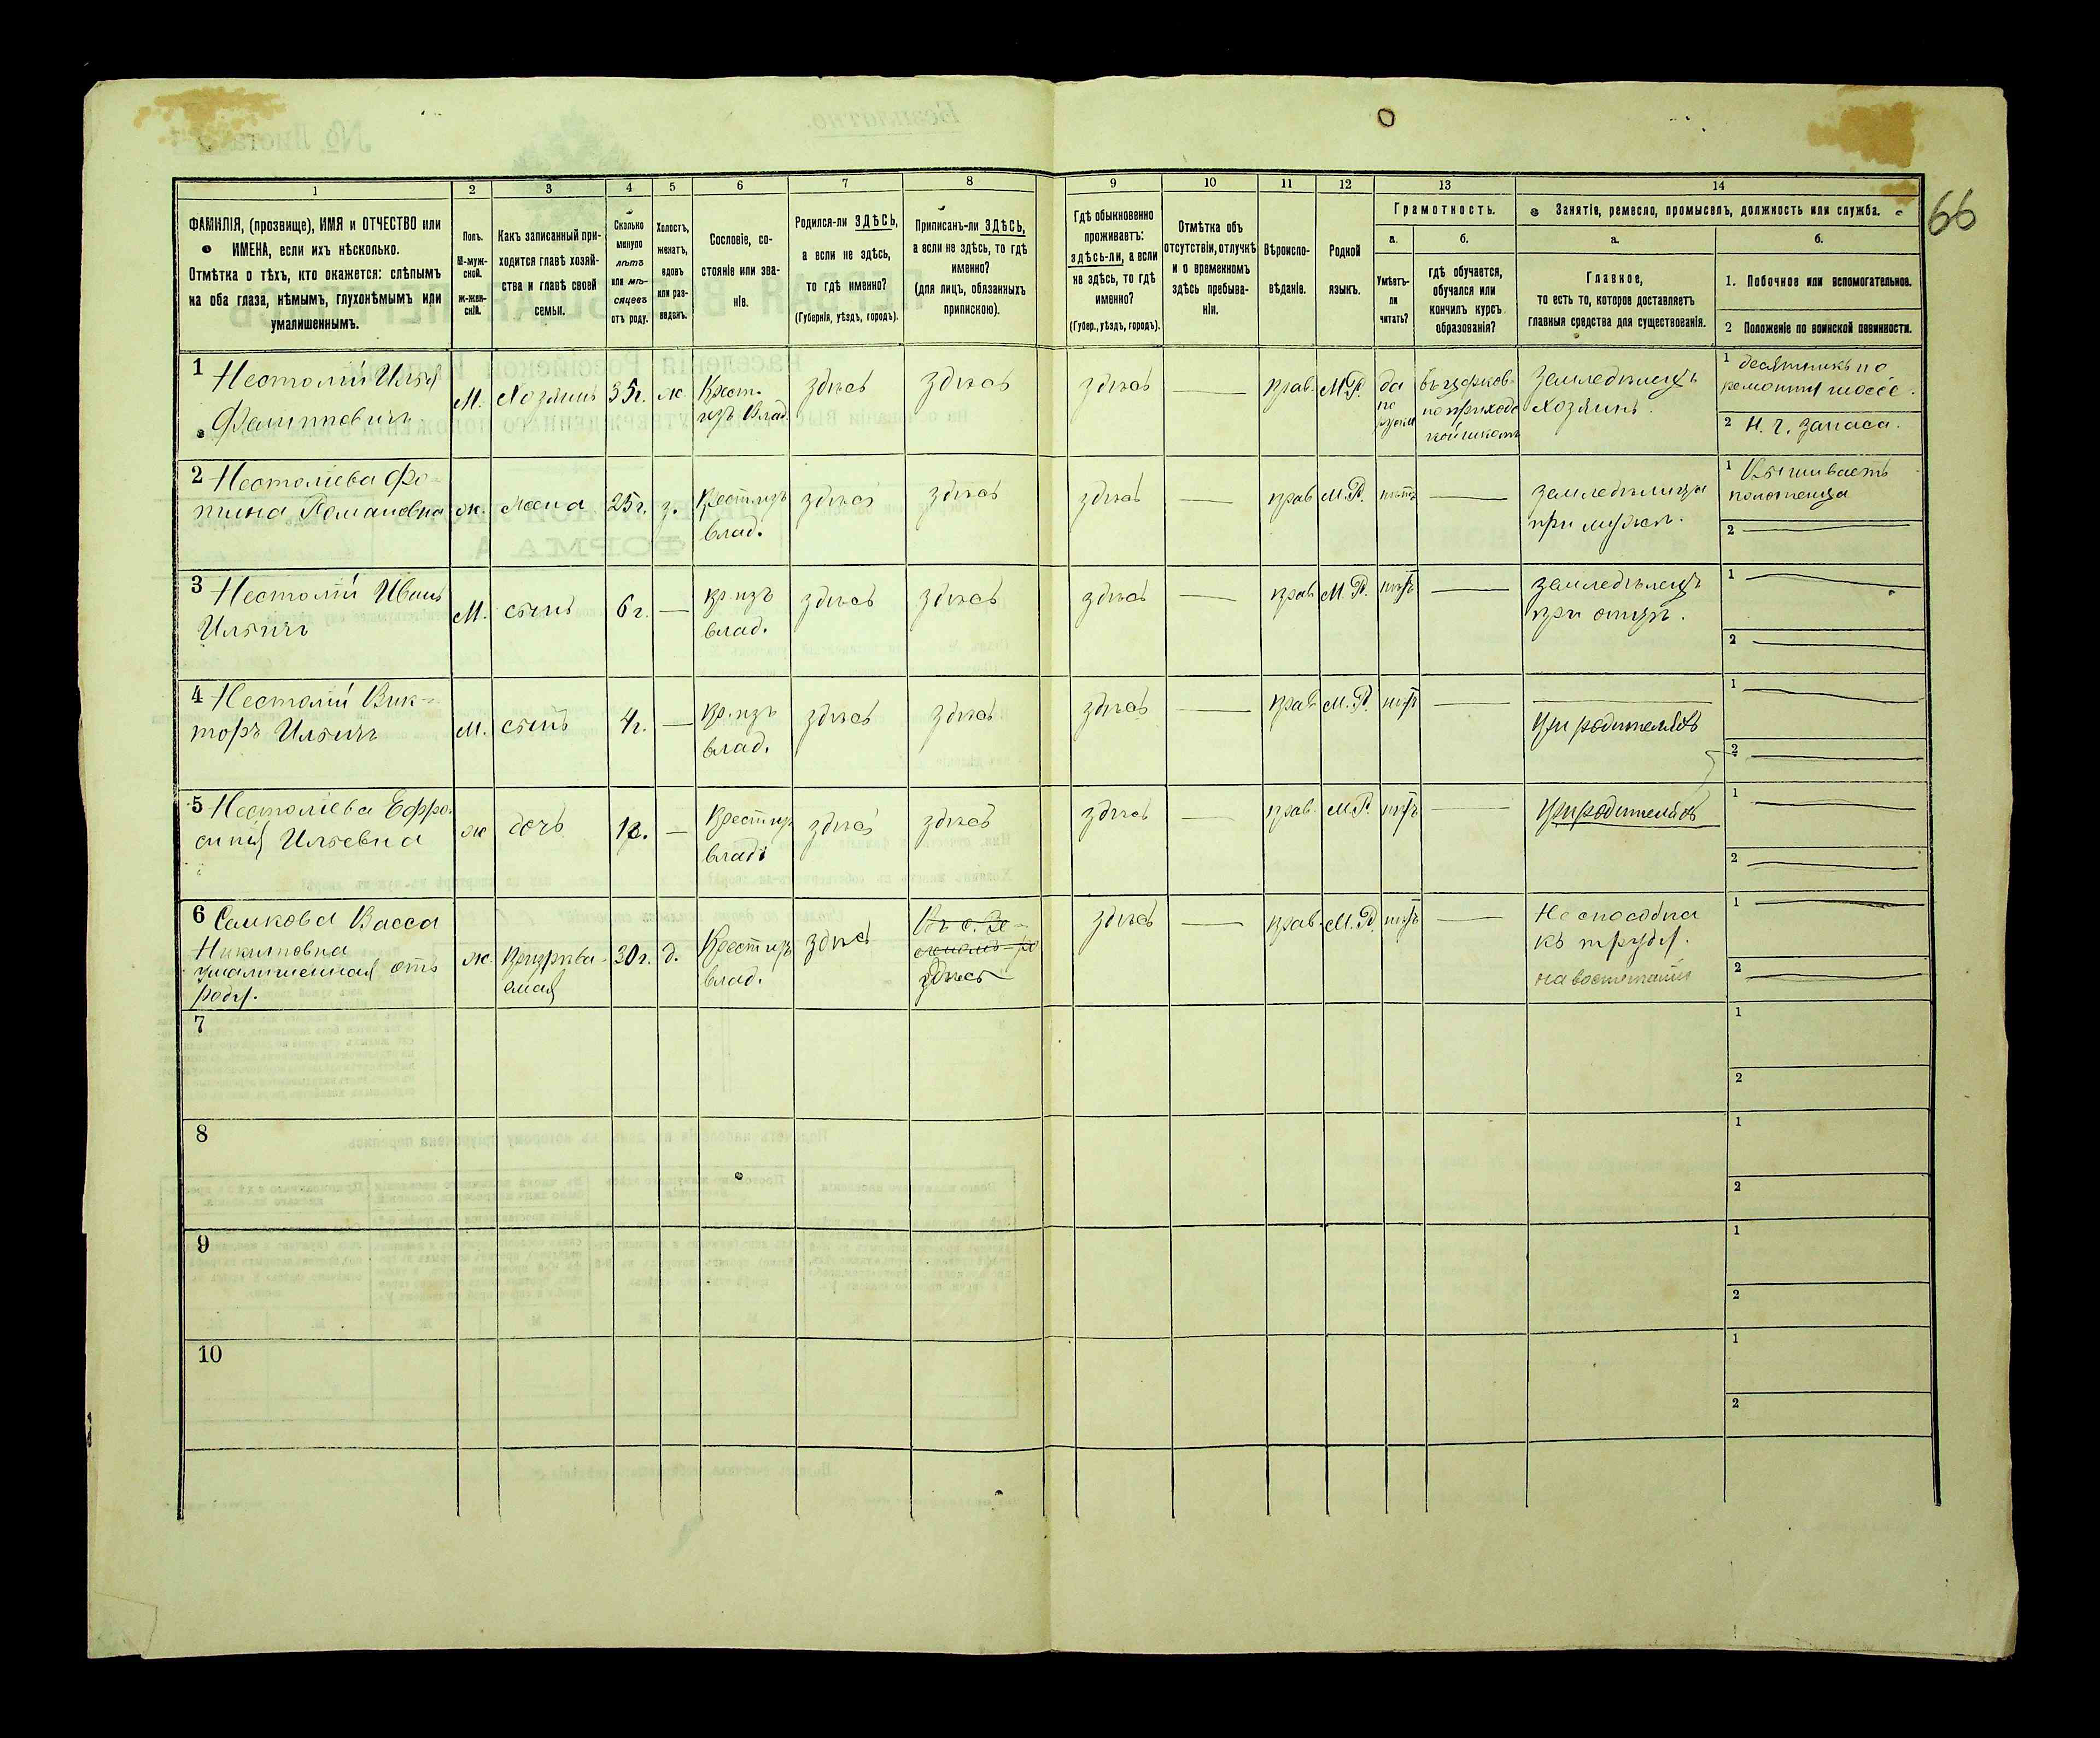 66
1 2 3 4 5 6 7 8 9 10 11 12 13 14
ФАМИЛІЯ, (прозвище), ИМЯ и ОТЧЕСТВО или
ИМЕНА, если ихъ нѣсколько.
Отмѣтка о тѣхъ, кто окажется: слѣпымъ
на оба глаза, нѣмымъ, глухонѣмымъ или
умалишеннымъ.
Полъ.
М-муж-
ской.
ж-жен-
скій.
Какъ записанный при-
ходится главѣ хозяй-
ства и главѣ своей
семьи.
Сколько
минуло
лѣтъ
или мѣ-
сяцевъ
отъ роду.
Холостъ,
женатъ,
вдовъ
или раз-
веденъ.
Сословіе, со-
стояніе или зва-
ніе.
Родился-ли ЗДѢСЬ,
а если не здѣсь,
то гдѣ именно?
(Губернія, уѣздъ, городъ).
Приписанъ-ли ЗДѢСЬ,
а если не здѣсь, то гдѣ
именно?
(для лицъ, обязанныхъ
припискою).
Гдѣ обыкновенно
проживаетъ:
здѣсь-ли, а если
не здѣсь, то гдѣ
именно?
(Губер., уѣздъ, городъ).
Отмѣтка объ
отсутствіи, отлучкѣ
и о временномъ
здѣсь пребыва-
ніи.
Вѣроиспо-
вѣданіе.
Родной
языкъ.
Грамотность.
а.
Умѣетъ-
ли
читать?
б.
гдѣ обучается,
обучался или
кончилъ курсъ
образованія?
Занятіе, ремесло, промыселъ, должность или служба.
а.
Главное,
то есть то, которое доставляетъ
главныя средства для существованія.
б.
1. Побочное или вспомогательное.
2 Положеніе по воинской повинности.
1 Нестолій Илья
Филипповичъ
М.
Хозяинъ
35 г.
ж.
Крест.
изъ Влад.
здѣсь
здѣсь
здѣсь
прав.
М.Р.
да
по
русски
въ церков-
но приход
ской школѣ
земледѣлецъ
хозяинъ.
1 десятникъ по
ремонту шоссе.
2 Н. ч. запаса.
2 Нестоліева Фо-
тина Романовна
ж.
жена
25 г.
з.
Крест. изъ
влад.
здѣсь
здѣсь
здѣсь
прав
М.Р.
нѣтъ
земледѣлица
при мужѣ.
1 Вышиваетъ
полотенца
2
3 Нестолій Иванъ
Ильичъ
М.
сынъ
6 г.
кр. изъ
влад.
здѣсь
здѣсь
здѣсь
прав
М.Р.
нѣтъ
земледѣлецъ
при отцѣ.
1
2
4 Нестолій Вик-
торъ Ильичъ
М.
сынъ
4 г.
кр. изъ
влад.
здѣсь
здѣсь
здѣсь
прав
М.Р.
нѣтъ
при родителяхъ
1
2
5 Нестоліева Ефро-
синія Ильевна
ж
дочь
1 г.
Крест изъ
влад.
здѣсь
здѣсь
здѣсь
прав.
М.Р
нѣтъ
при родителяхъ
1
2
6 Самкова Васса
Никитовна
умалишенная отъ
роду.
ж.
30 г.
д.
Крест изъ
влад.
здѣсь
здѣсь
здѣсь
прав.
М.Р.
нѣтъ
Неспособна
къ труду.
1
2
7
1
2
8
1
2
9
1
2
10
1
2